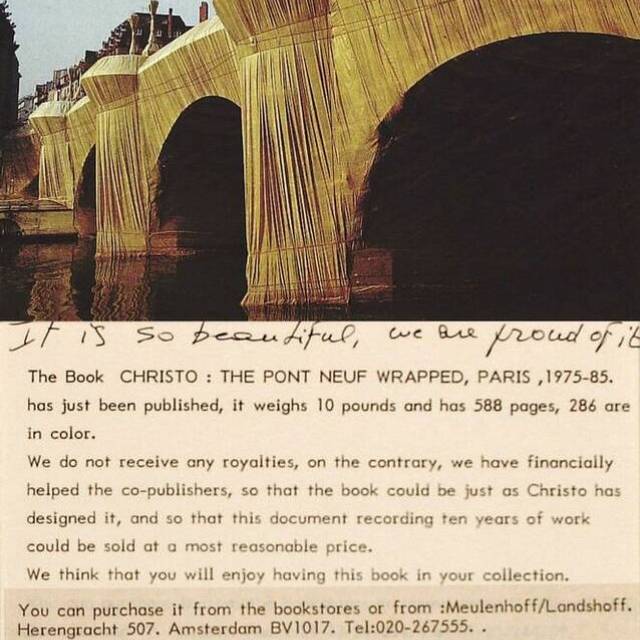 It is so beautiful, we are proud of it
The Book CHRISTO : THE PONT NEUF WRAPPED, PARIS ,1975-85.
has just been published, it weighs 10 pounds and has 588 pages, 286 are
in color.
We do not receive any royalties, on the contrary, we have financially
helped the co-publishers, so that the book could be just as Christo has
designed it, and so that this document recording ten years of work
could be sold at a most reasonable price.
We think that you will enjoy having this book in your collection.
You can purchase it from the bookstores or from :Meulenhoff/Landshoff.
Herengracht 507. Amsterdam BV1017. Tel:020-267555. .